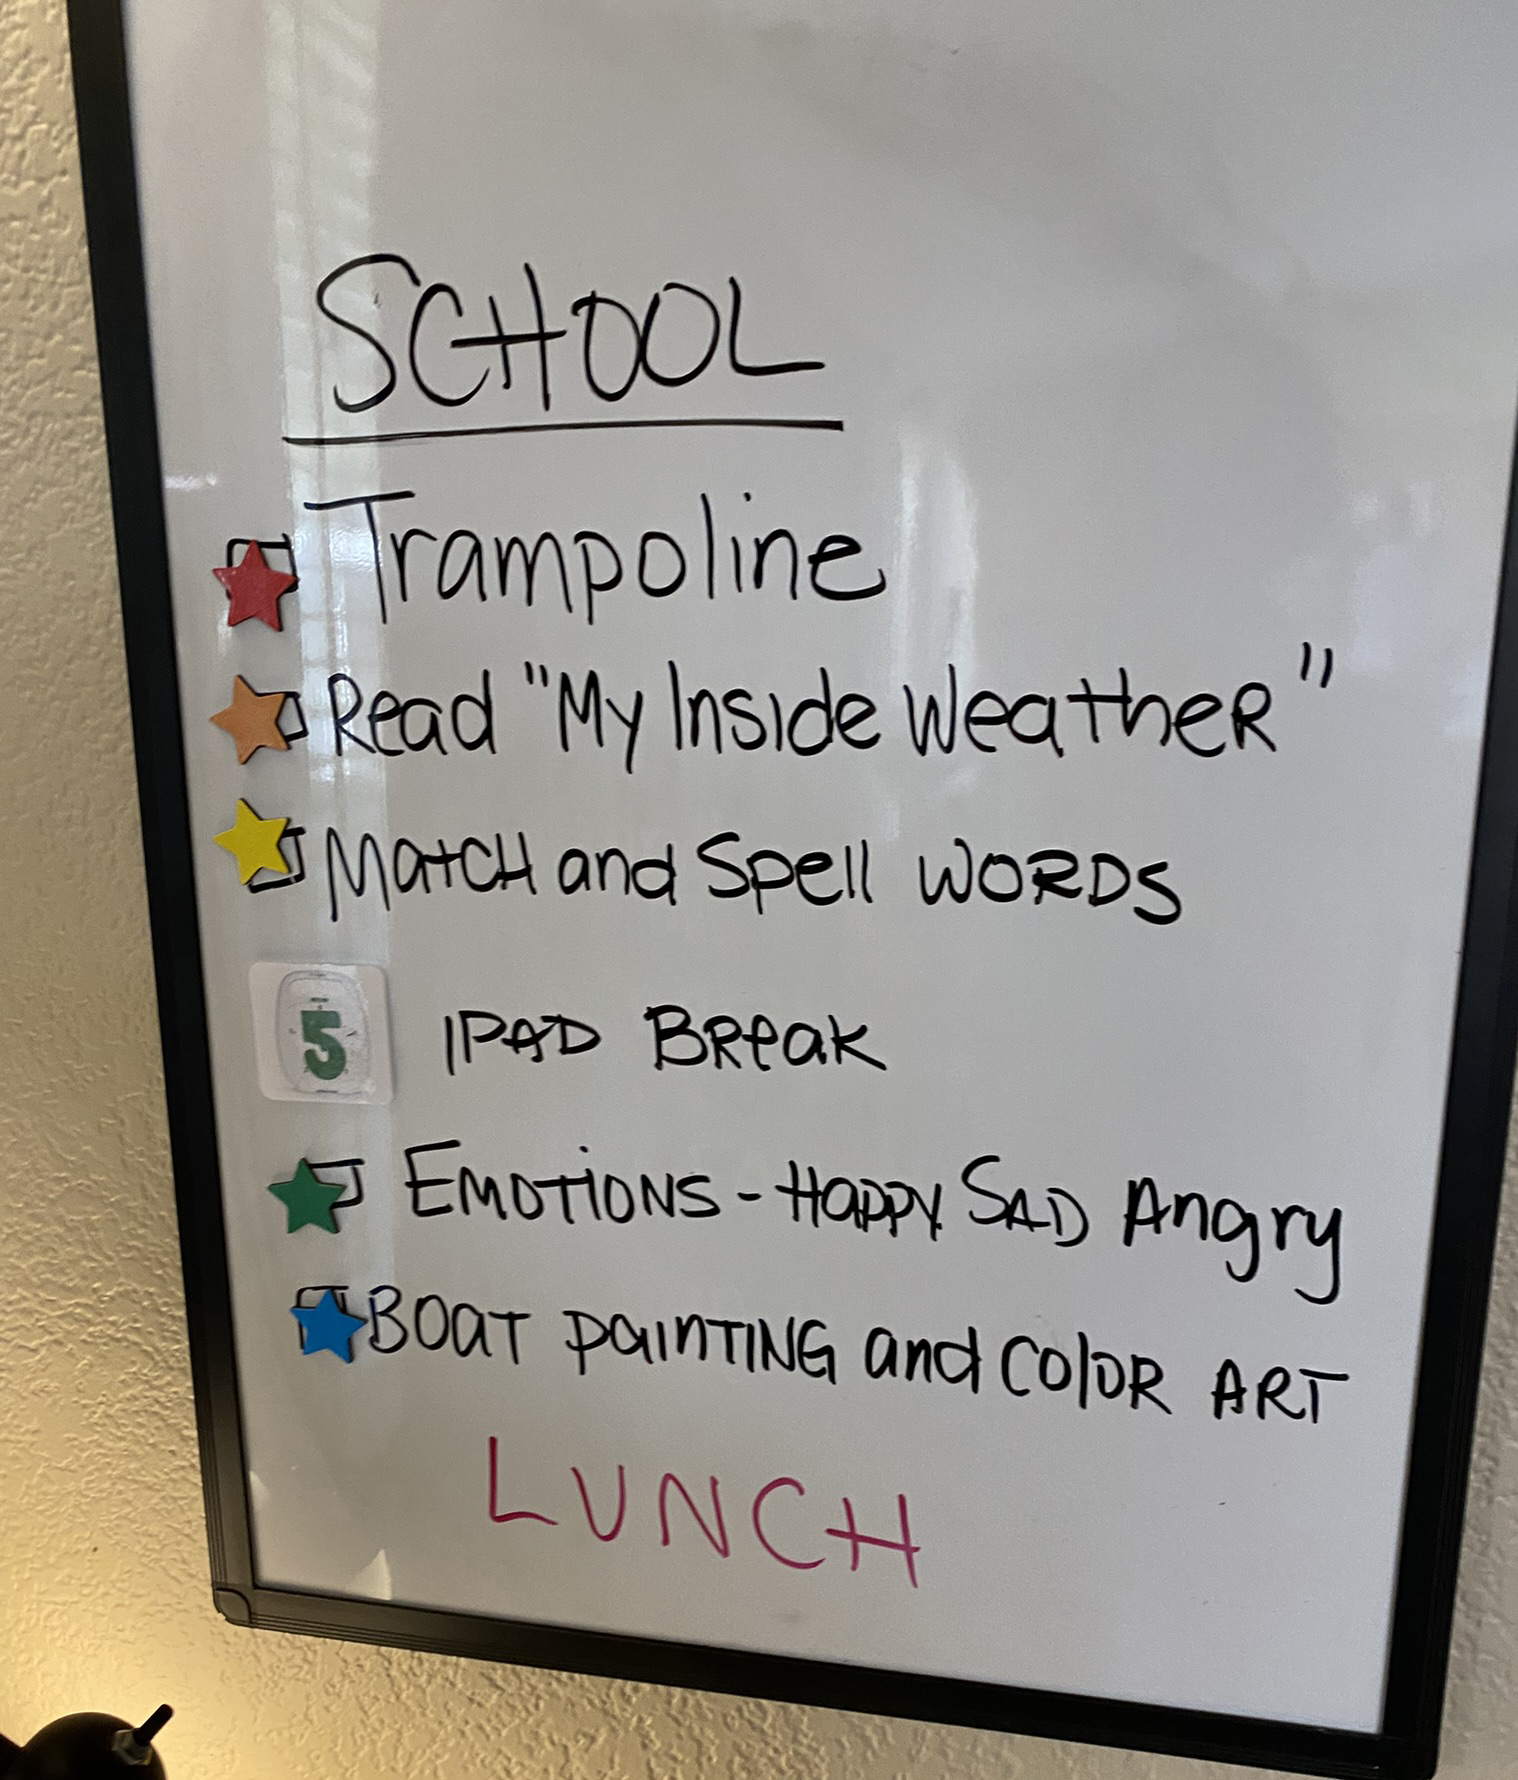 SCHOOL
Trampoline
Read "My Inside Weather"
Match and Spell WORDS
5 IPAD Break
EMOTIONS - HAPPY SAD Angry
BOAT PAINTING and COLOR ART
LUNCH